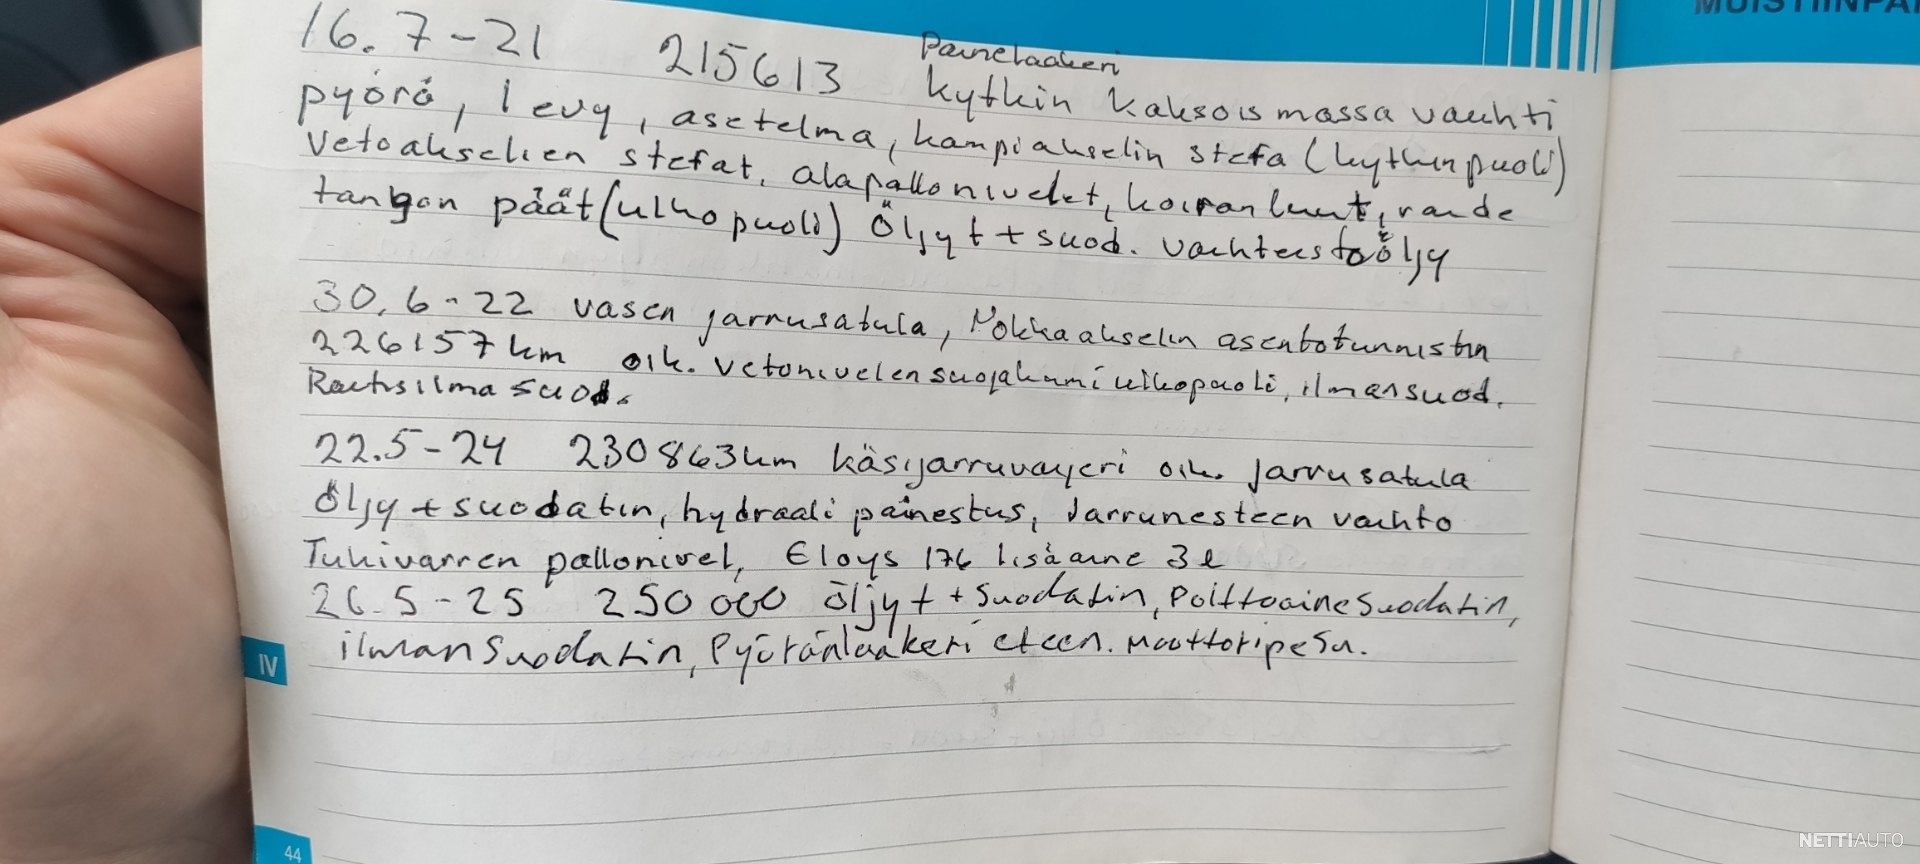 MUISTIINPA
16.7-21 215613 Painelaakeri
kytkin kaksoismassa vauhti
pyörä, levy, asetelma, kampiakselin stefa (kytkinpuoli)
Vetoakselien stefat, alapallonivelet, koiranluut, raide
tangon päät (ulkopuoli) Öljyt + suod. vaihteistoöljy
30.6-22 vasen jarrusatula, Nokka akselin asentotunnistin
226157km oik. vetonivelen suojakumi ulkopuoli, ilmansuod.
Raitisilma suod.
22.5-24 230863km käsijarruvaijeri oik. jarrusatula
Öljy + suodatin, hydrauli painestus, Jarrunesteen vaihto
Tukivarren pallonivel, Eloys 176 lisäaine 3l
26.5-25 250 000 öljyt + Suodatin, Polttoainesuodatin,
ilmansuodatin, Pyöränlaakeri eteen. Moottoripesu.
IV
44
NETTIAUTO